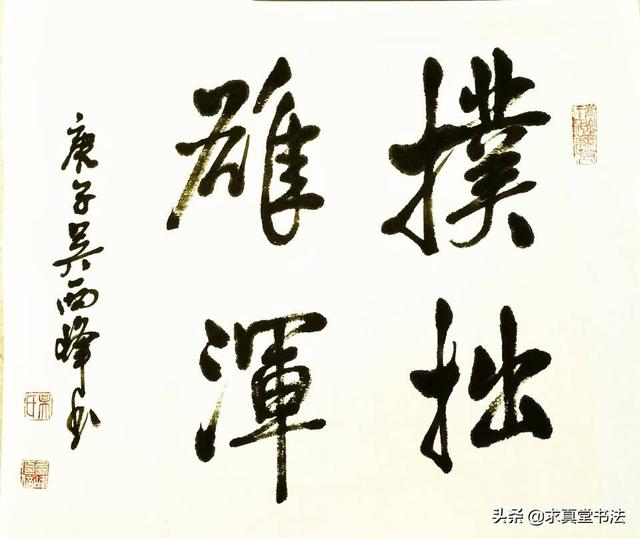 撲拙
雄渾
庚子吴西峰书
头条 @求真堂书法